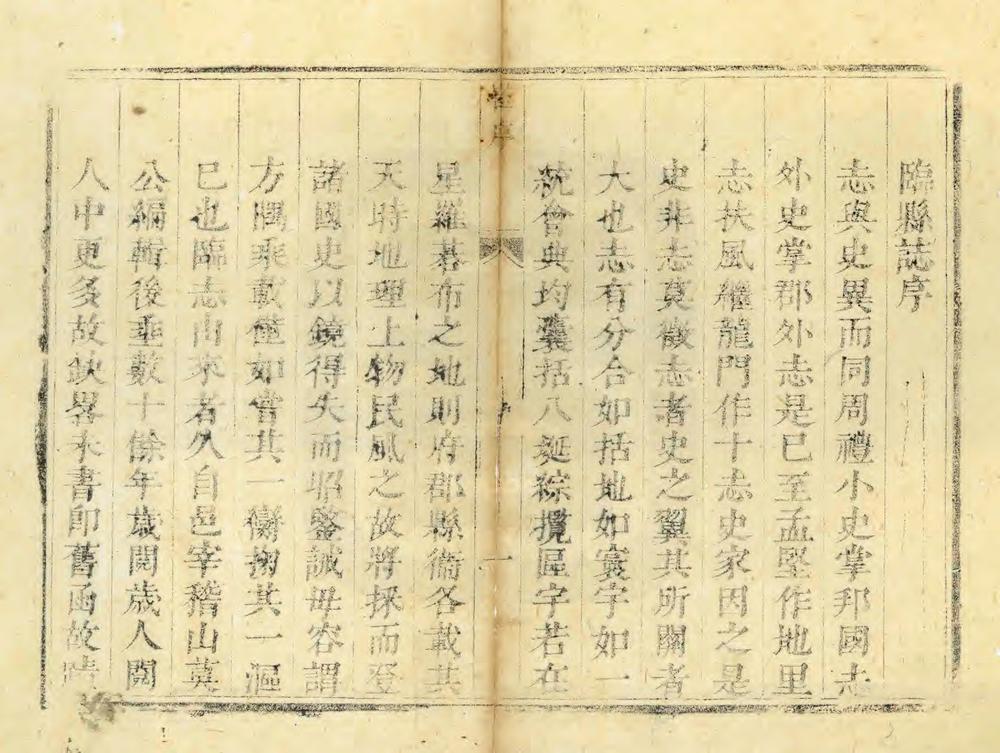 臨縣誌序
志與史異而同周禮小史掌邦國志
外史掌郡外志是已至孟堅作地里
志扶風繼龍門作十志史家因之是
史非志莫徵志者史之翼其所關者
大也志有分合如括地如寰宇如一
統會典均囊括八埏綜攬區宇若在
序
一
星羅碁布之地則府郡縣衞各載其
天時地理土物民風之故將採而登
諸國史以鏡得失而昭鑒誡毋容謂
方隅乘載僅如嘗其一臠掬其一漚
已也臨志由來者久自邑宰稽山莫
公編輯後垂數十餘年歲閱歲人閱
人中更多故缺畧未書即舊函故